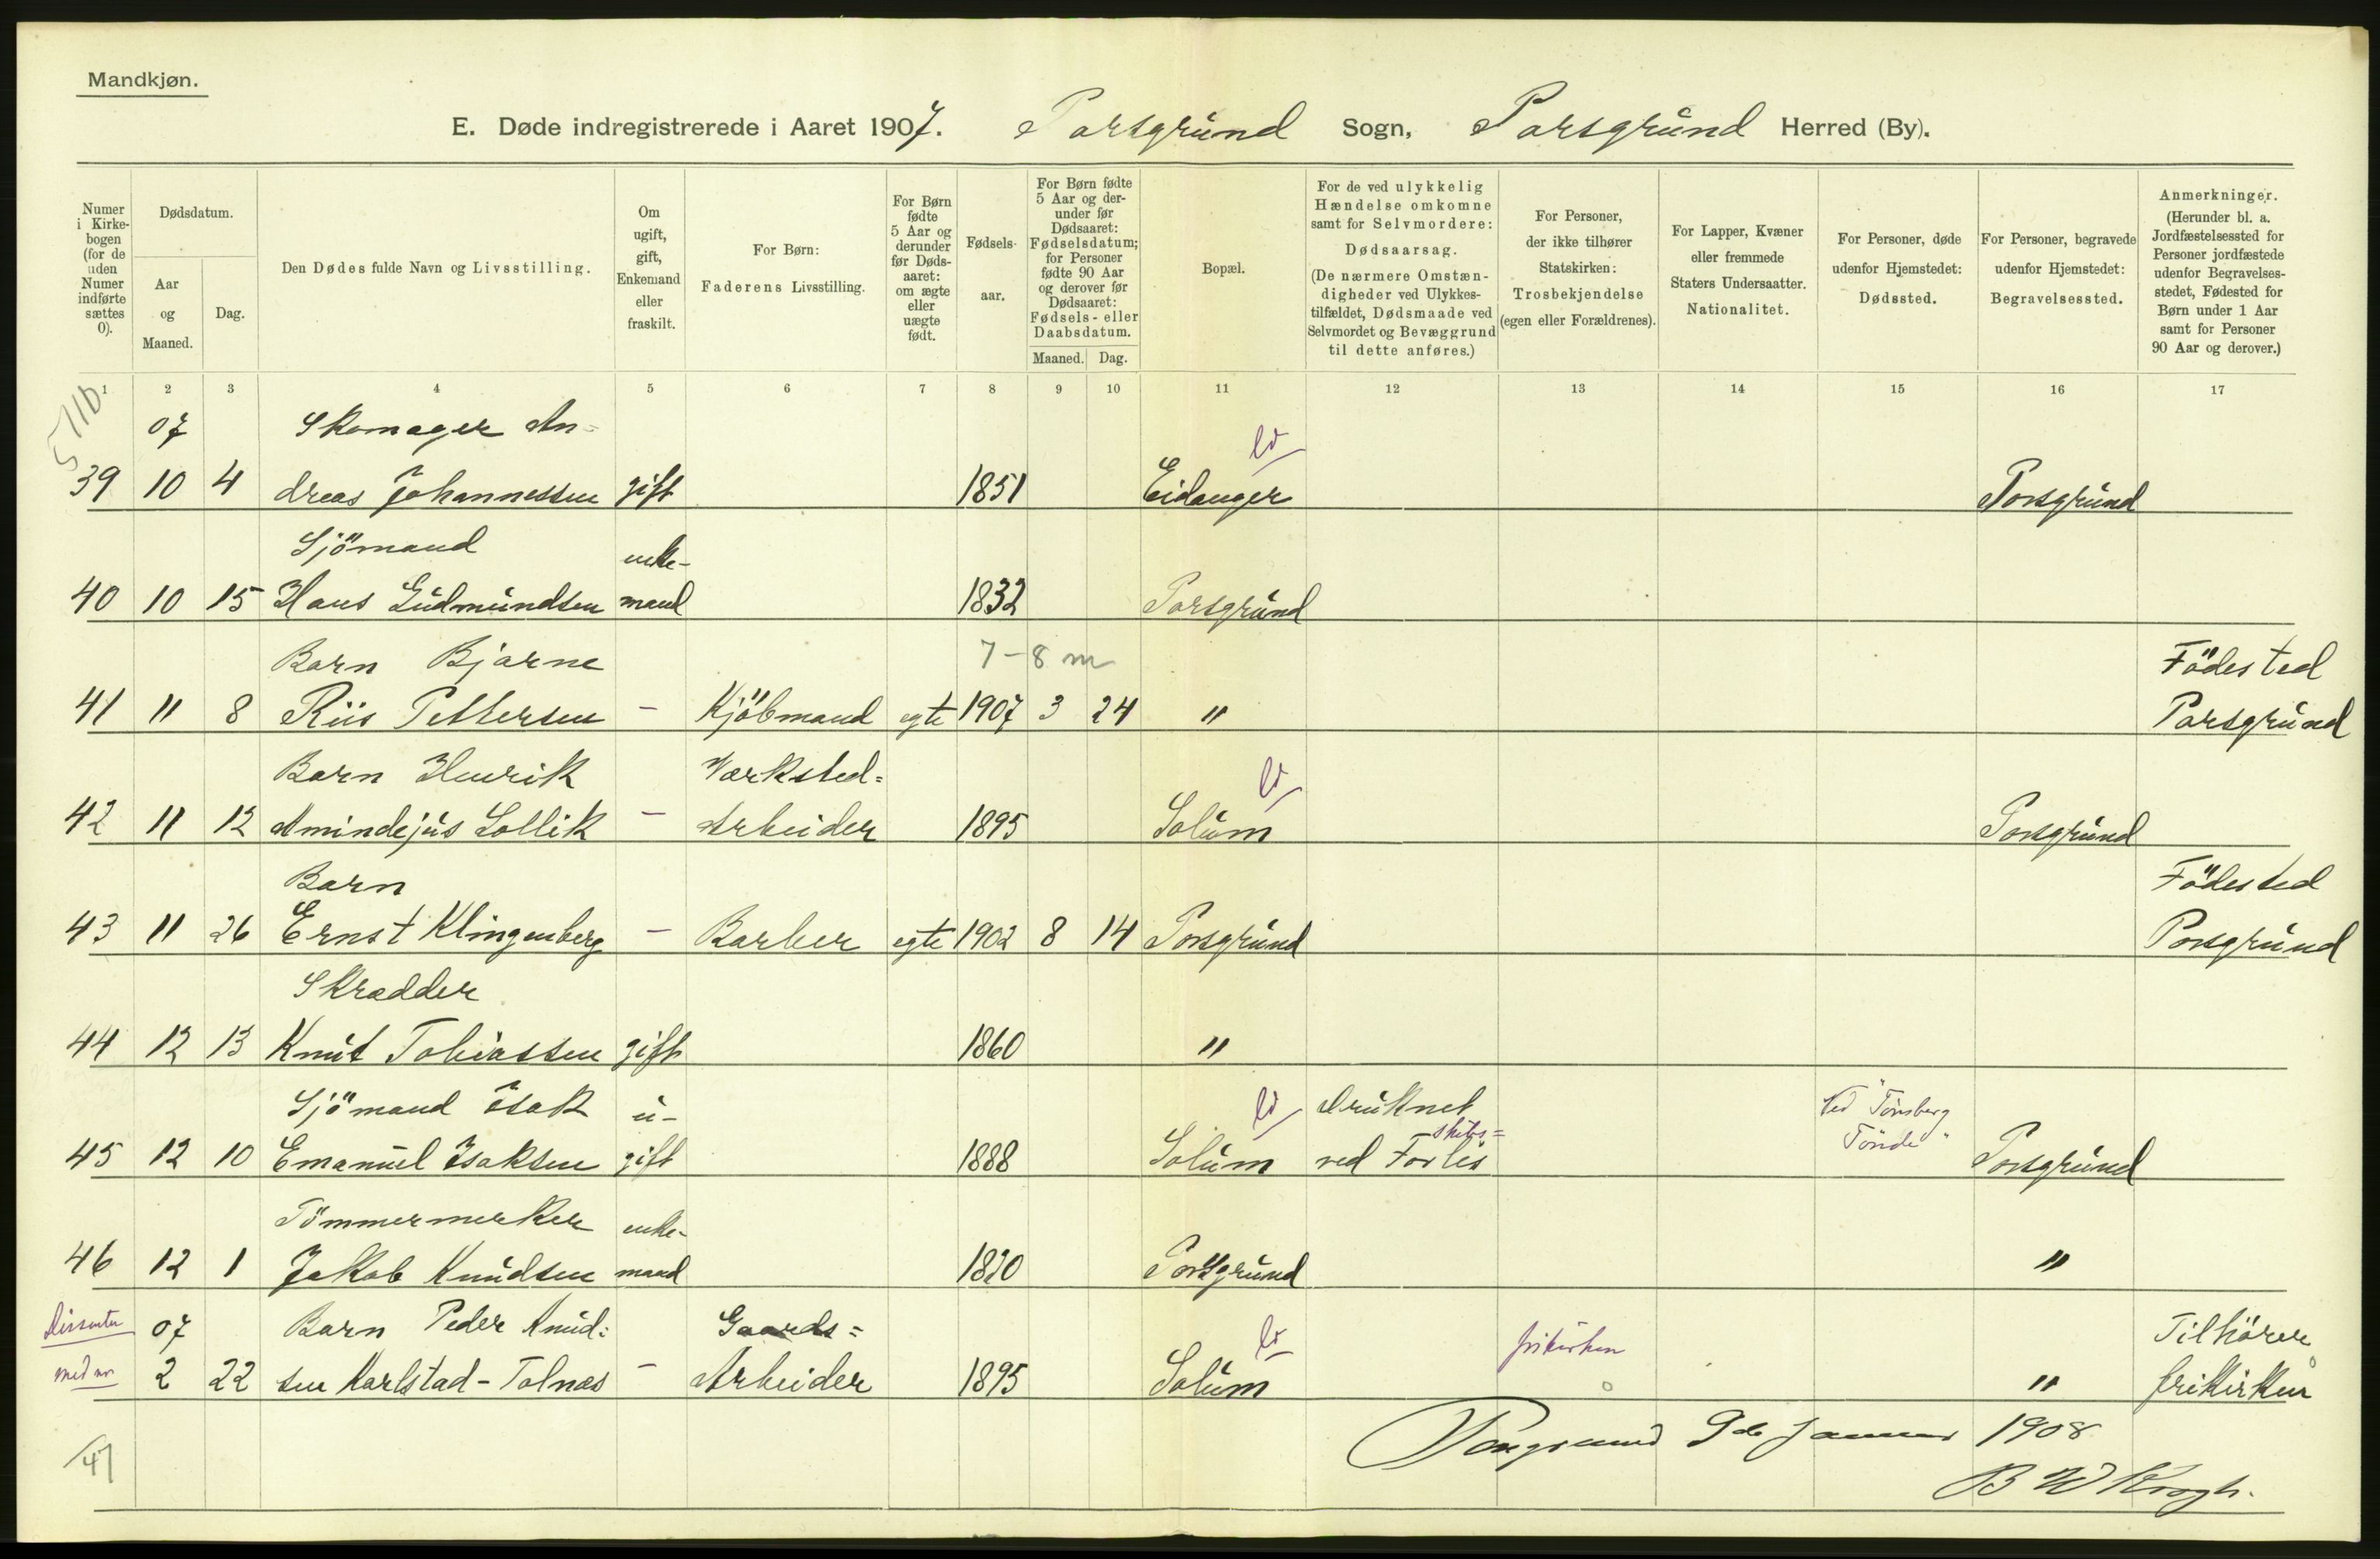 Mandkjøn.
E. Døde indregistrerede i Aaret 1907. Porsgrund Sogn, Porsgrund Herred (By).
Numer i Kirkebogen (for de uden Numer indførte sættes 0).
Dødsdatum.
Aar og Maaned.
Dag.
Den Dødes fulde Navn og Livsstilling.
Om ugift, gift, Enkemand eller fraskilt.
For Børn: Faderens Livsstilling.
For Børn fødte 5 Aar og derunder før Dødsaaret: om ægte eller uægte født.
Fødselsaar.
For Børn fødte 5 Aar og derunder før Dødsaaret: Fødselsdatum; for Personer fødte 90 Aar og derover før Dødsaaret: Fødsels- eller Daabsdatum.
Maaned. Dag.
Bopæl.
For de ved ulykkelig Hændelse omkomne samt for Selvmordere: Dødsaarsag. (De nærmere Omstændigheder ved Ulykkestilfældet, Dødsmaade ved Selvmordet og Bevæggrund til dette anføres.)
For Personer, der ikke tilhører Statskirken: Trosbekjendelse (egen eller Forældrenes).
For Lapper, Kvæner eller fremmede Staters Undersaatter. Nationalitet.
For Personer, døde udenfor Hjemstedet: Dødssted.
For Personer, begravede udenfor Hjemstedet: Begravelsessted.
Anmerkninger. (Herunder bl. a. Jordfæstelsessted for Personer jordfæstede udenfor Begravelsesstedet, Fødested for Børn under 1 Aar samt for Personer 90 Aar og derover.)
1 2 3 4 5 6 7 8 9 10 11 12 13 14 15 16 17
07 Skomager An=
39 10 4 dreas Johannessen gift 1851 Eidanger Porsgrund
Sjömand enke-
40 10 15 Hans Gudmundsen mand 1832 Porsgrund
Barn Bjarne 7-8 m Födested
41 11 8 Riis Pettersen - Kjöbmand egte 1907 3 24 " Porsgrund
Barn Henrik Værksted=
42 11 12 Amindejus Lollik - Arbeider 1895 Solum Porsgrund
Barn Födested
43 11 26 Ernst Klingenberg - Barber egte 1902 8 14 Porsgrund Porsgrund
Skrædder
44 12 13 Knut Tobiassen gift 1860 "
Sjömand Isak u- druknet Ved "Tönsberg
45 12 10 Emanuel Isaksen gift 1888 Solum ved Forlis skibs= Tönde" Porsgrund
Tömmermerker enke-
46 12 1 Jakob Knudsen mand 1820 Porsgrund "
Dissenter 07 Barn Peder Knud= Gaards= frikirken Tilhörer
med nr 2 22 sen Karlstad-Tolnæs - Arbeider 1895 Solum " frikirken
47
Porsgrund 9de Januar 1908
B W Krogh.